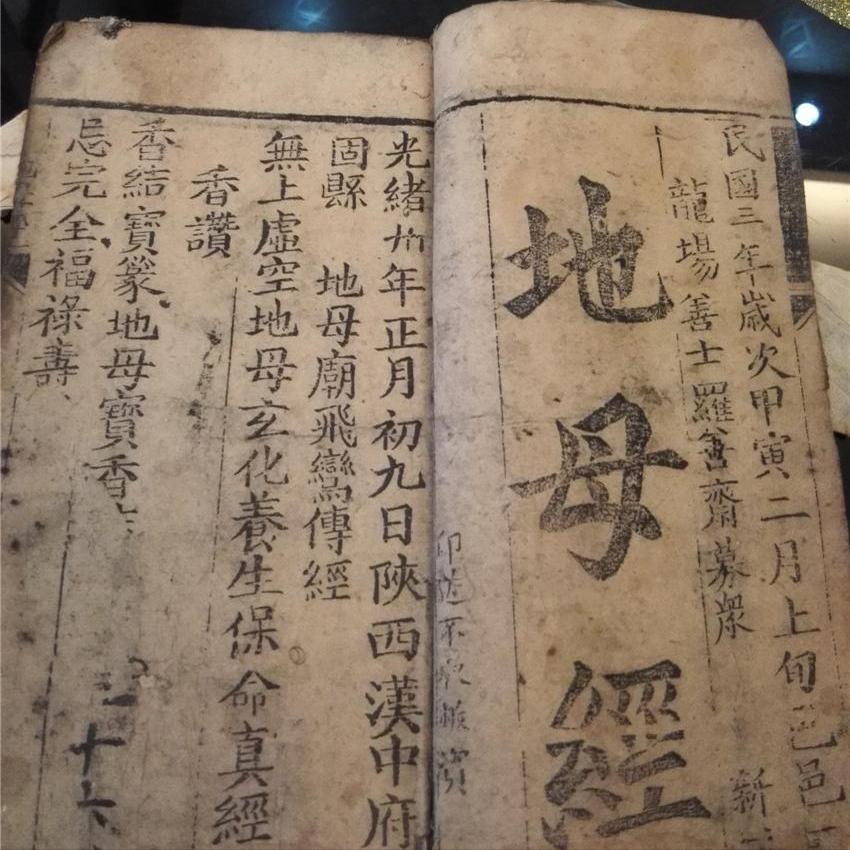 民國三年歲次甲寅二月上旬邑邑
龍場善士羅善齋募眾
新
地母經
印送不取
光緒卅年正月初九日陝西漢中府
固縣 地母廟飛鸞傳經
無上虛空地母玄化養生保命真經
香讚
香結寶篆地母寶香
忌完全福祿壽
三十六